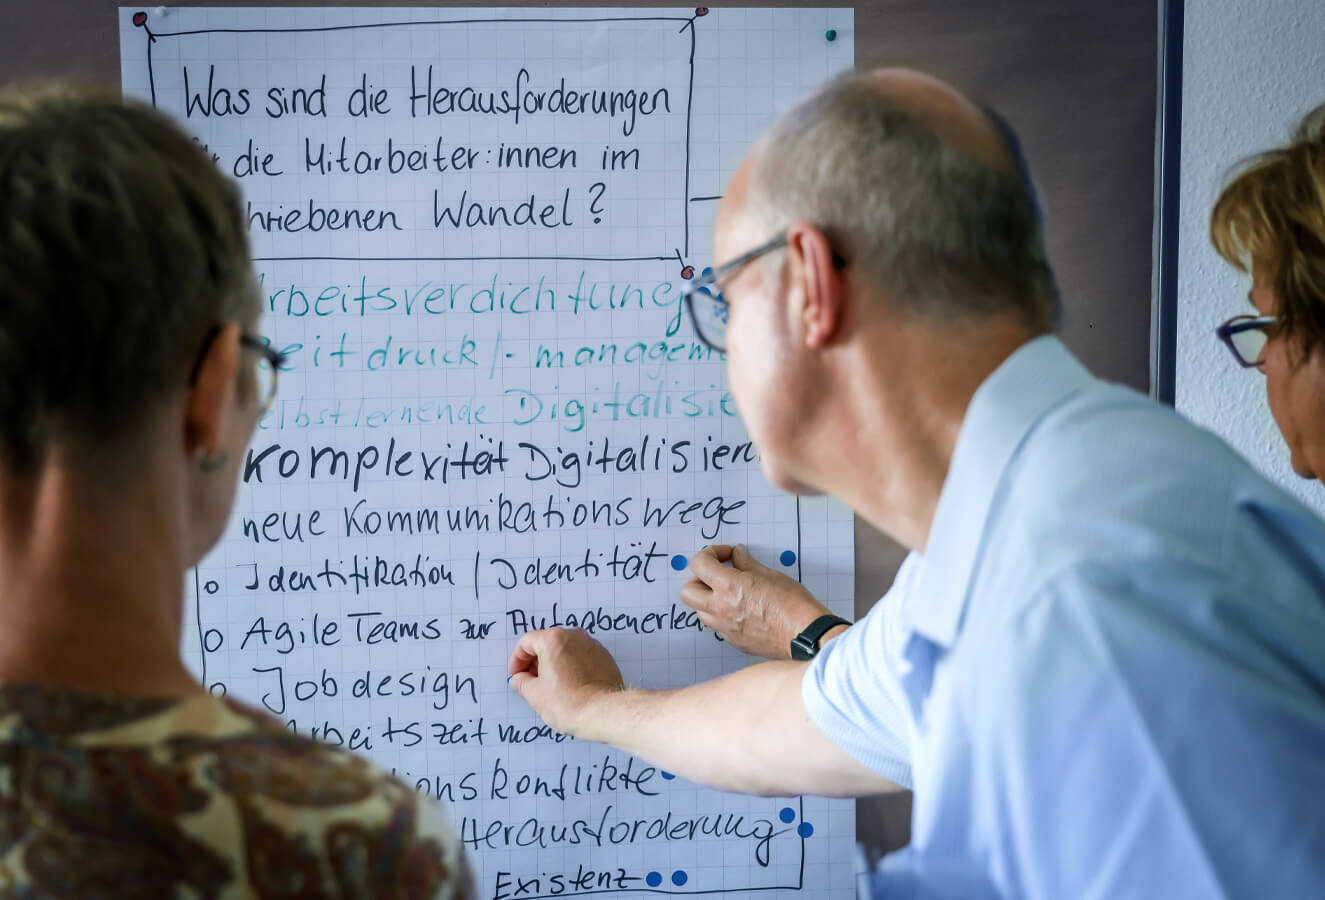 Was sind die Herausforderungen
die Mitarbeiter:innen im
hriebenen Wandel?
rbeitsverdichtung
eitdruck/-managem
elbstlernende Digitalisie
Komplexität Digitalisieru
neue Kommunikationswege
o Identifikation / Identität
o Agile Teams zur Aufgabenerled
o Jobdesign
rbeitszeitmod
onskonflikte
Herausforderung
Existenz